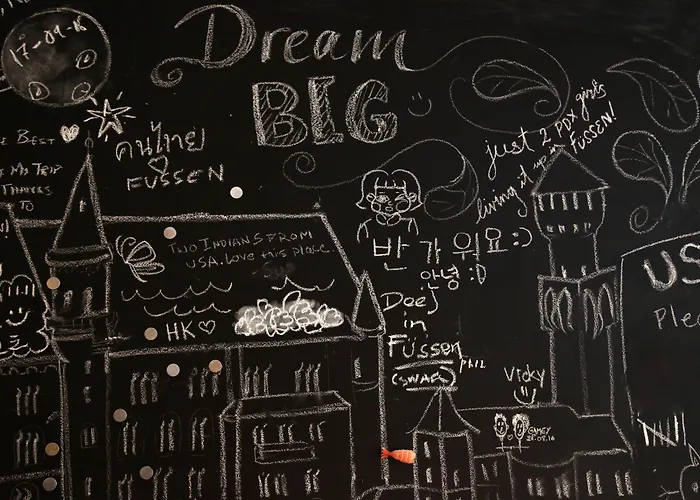 17-09-16
Dream
BIG
E BEST
MY TRIP
THANKS
TO
คนไทย
FUSSEN
just 2 PDX girls
living it up in FÜSSEN!
TWO INDIANS FROM
USA. Love this place.
반가워요 :)
안녕 :D
HK
Deej
in
Füssen
PHIL
(SWAG)
Vicky
US
Ple